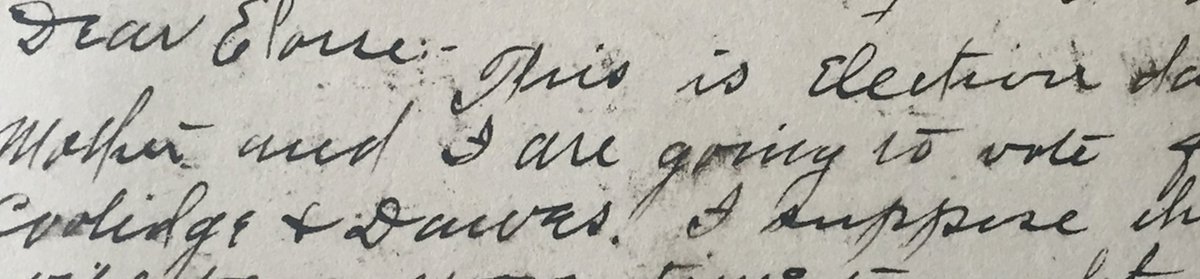 Dear Eloise:-
This is Election da
Mother and I are going to vote f
Coolidge & Dawes. I suppose th